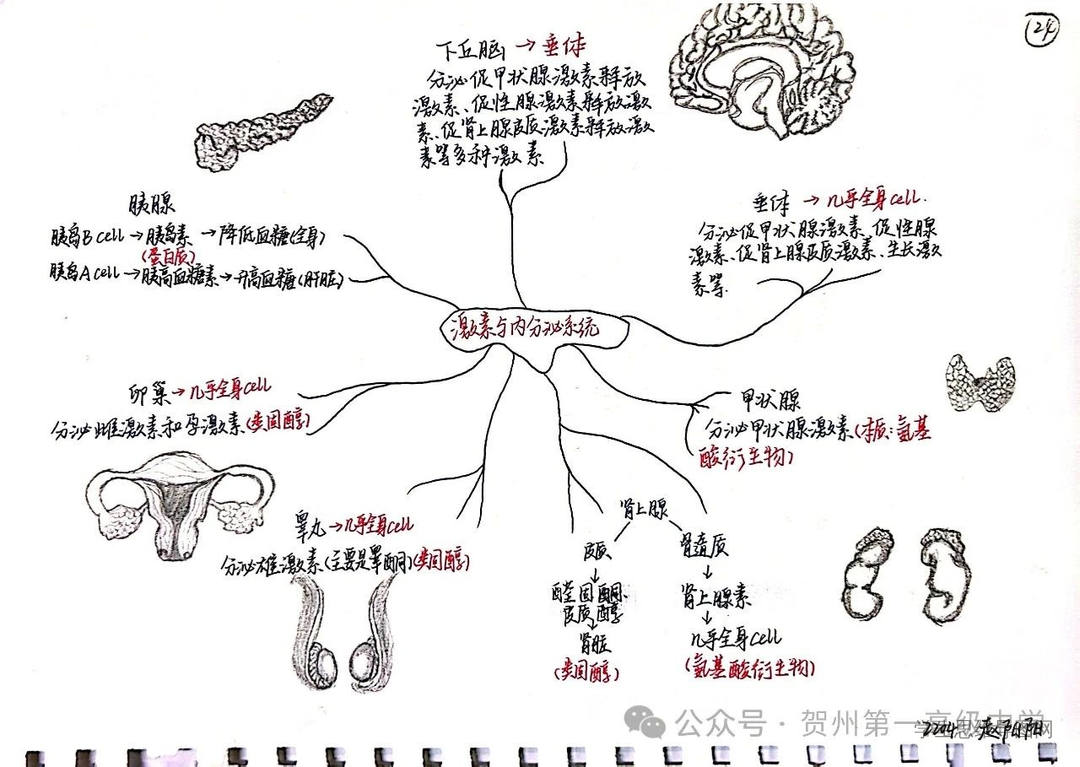 24
下丘脑→垂体
分泌促甲状腺激素释放
激素、促性腺激素释放激
素、促肾上腺皮质激素释放激
素等多种激素
胰腺
胰岛B cell→胰岛素→降低血糖(全身)
(蛋白质)
胰岛A cell→胰高血糖素→升高血糖(肝脏)
垂体→几乎全身cell.
分泌促甲状腺激素、促性腺
激素、促肾上腺皮质激素、生长激
素等.
激素与内分泌系统
卵巢→几乎全身cell
分泌雌激素和孕激素(类固醇)
甲状腺
分泌甲状腺激素(本质:氨基
酸衍生物)
睾丸→几乎全身cell
分泌雄激素(主要是睾酮)(类固醇)
肾上腺
皮质
↓
醛固酮、
皮质醇
↓
肾脏
(类固醇)
肾髓质
↓
肾上腺素
↓
几乎全身cell
(氨基酸衍生物)
公众号·贺州第一高级中学
2204